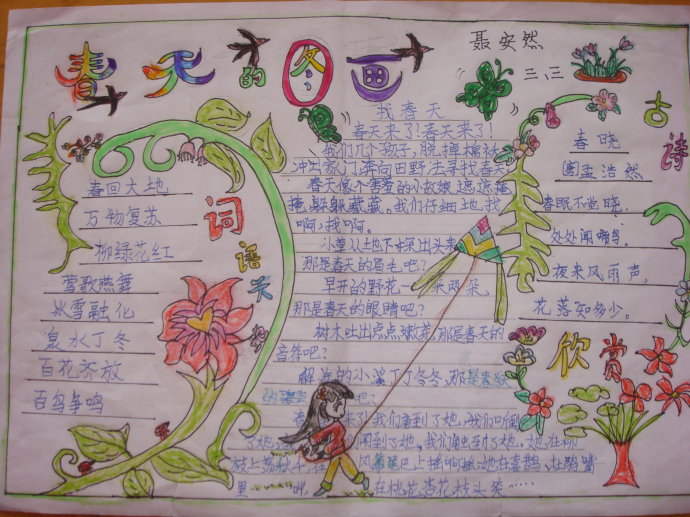 春天的图画
聂安然
三、三
词语天地
春回大地
万物复苏
柳绿花红
莺歌燕舞
冰雪融化
泉水丁冬
百花齐放
百鸟争鸣
找春天
春天来了!春天来了!
我们几个孩子,脱掉棉袄,
冲出家门,奔向田野,去寻找春天。
春天像个害羞的小姑娘,遮遮掩
掩,躲躲藏藏。我们仔细地找
啊,找啊。
小草从地下探出头来,
那是春天的眉毛吧?
早开的野花一 朵两朵,
那是春天的眼睛吧?
树木吐出点点嫩芽,那是春天的
音符吧?
解冻的小溪丁丁冬冬,那是春天
的 吧?
春 来了!我们看到了她,我们听到
了她, 闻到了她,我们触到了她。她在柳
枝上荡秋千,在风筝尾巴上摇啊摇;她在喜鹊、杜鹃嘴
里 叫,在桃花、杏花枝头笑……
古诗
春晓
唐 孟浩然
春眠不觉晓,
处处闻啼鸟。
夜来风雨声,
花落知多少。
欣赏